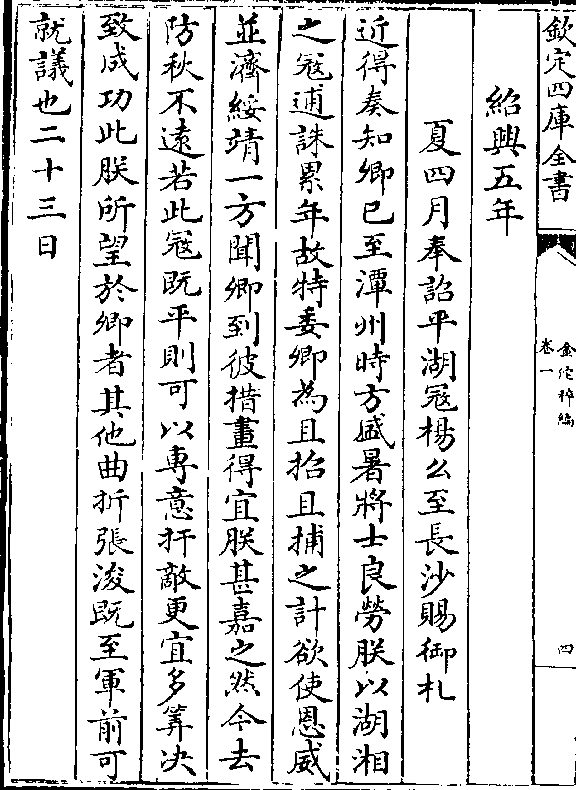 欽定四庫全書
金佗稡編
卷一
四
紹興五年
夏四月奉詔平湖冦楊么至長沙賜御札
近得奏知卿已至潭州時方盛暑將士良勞朕以湖湘
之冦逋誅累年故特委卿為且招且捕之計欲使恩威
並濟綏靖一方聞卿到彼措畫得宜朕甚嘉之然今去
防秋不遠若此冦既平則可以專意扞敵更宜多筭决
致成功此朕所望於卿者其他曲折張浚既至軍前可
就議也二十三日